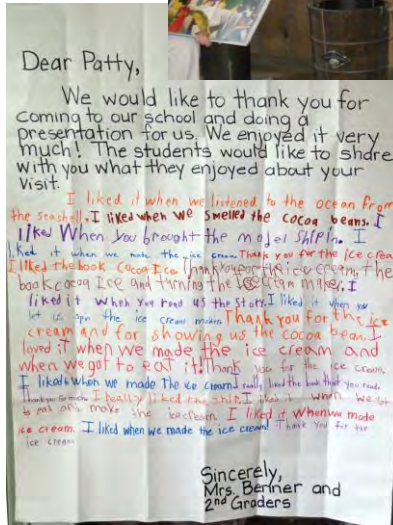 Dear Patty,
We would like to thank you for
coming to our school and doing a
presentation for us. We enjoyed it very
much! The students would like to share
with you what they enjoyed about your
visit.
I liked it when we listened to the ocean from
the seashell. I liked when we smelled the cocoa beans. I
liked When you brought the model Ship in. I
liked it when we made the ice cream. Thank you for the ice cream
I liked the book Cocoa Ice. Thank you for the ice cream, the
book cocoa Ice and turning the Ice cream maker. I
liked it when you read us the story. I liked it when you
let us spin the ice cream maker. Thank you for the ice
cream and for showing us the cocoa bean. I
loved it when we made the ice cream and
when we got to eat it! Thank you for the ice cream.
I liked it when we made The ice cream. I really liked the book that you read.
Thank you so much. I really liked the ship. I liked it when we got
to eat and make the ice cream. I liked it when we made
ice cream. I liked when we made the ice cream! Thank you for the
ice cream
Sincerely,
Mrs. Benner and
2nd Graders